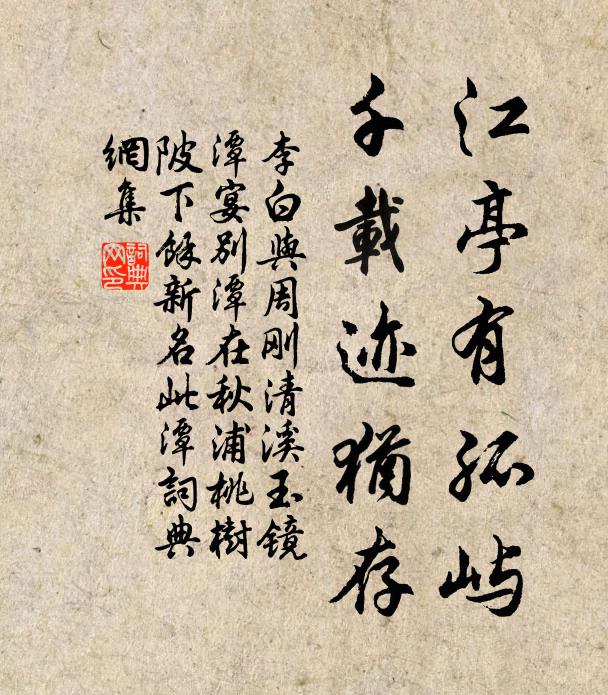 江亭有孤屿
千載迹猶存
李白與周刚清溪玉镜
潭宴别潭在秋浦桃樹
陂下餘新名此潭詞典
網集
詞典
网印